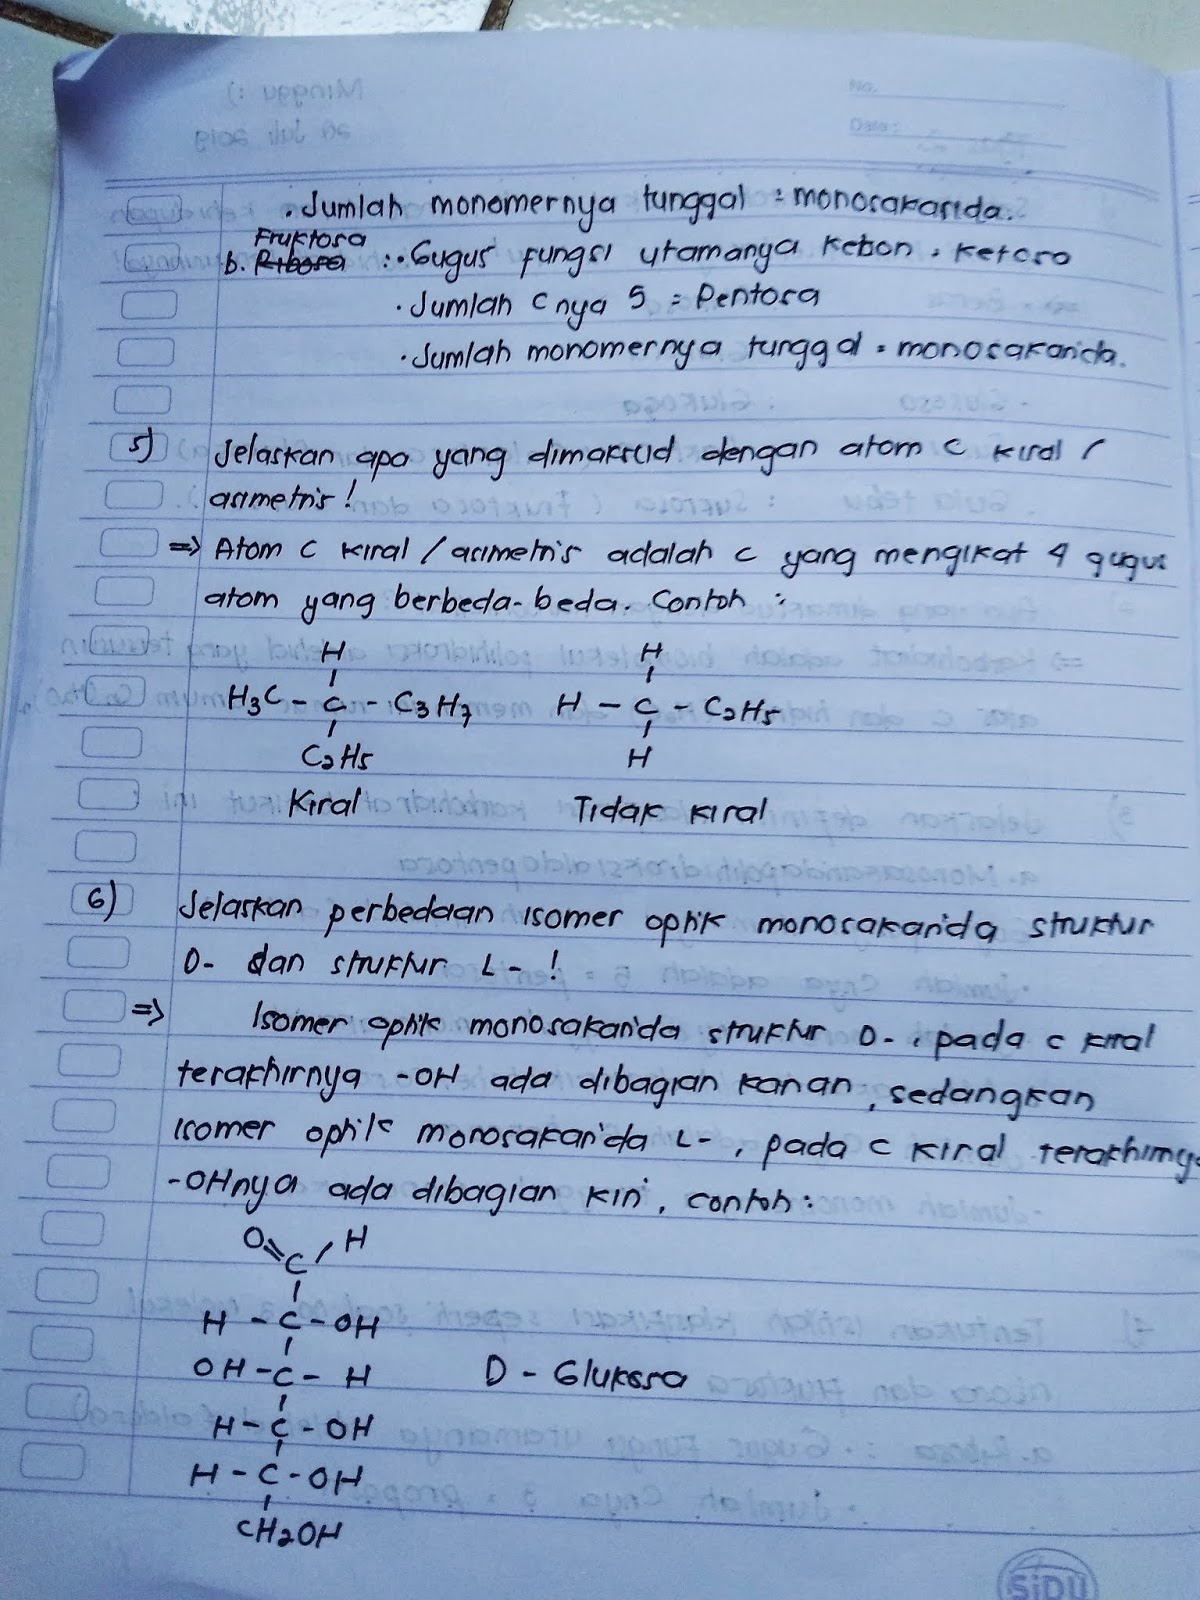 No.
Date:
. Jumlah monomernya tunggal = monosakarida.
Fruktosa
b. Ribosa : . Gugus fungsi utamanya Kebon = Ketoso
. Jumlah Cnya 5 = Pentosa
. Jumlah monomernya tunggal = monosakarida.
5) Jelaskan apa yang dimaksud dengan atom C kiral /
asimetris !
=> Atom C kiral / asimetris adalah C yang mengikat 4 gugus
atom yang berbeda-beda. Contoh :
H H
H3C - C - C3H7 H - C - C2H5
C2H5 H
Kiral Tidak kiral
6) Jelaskan perbedaan isomer optik monosakarida struktur
D- dan struktur L- !
=> Isomer optik monosakarida struktur D- , pada C kiral
terakhirnya -OH ada dibagian kanan, sedangkan
isomer optik monosakarida L- , pada C kiral terakhirny
-OHnya ada dibagian kiri, contoh :
O=C/H
H - C - OH
OH - C - H D - Glukosa
H - C - OH
H - C - OH
CH2OH
SiDU